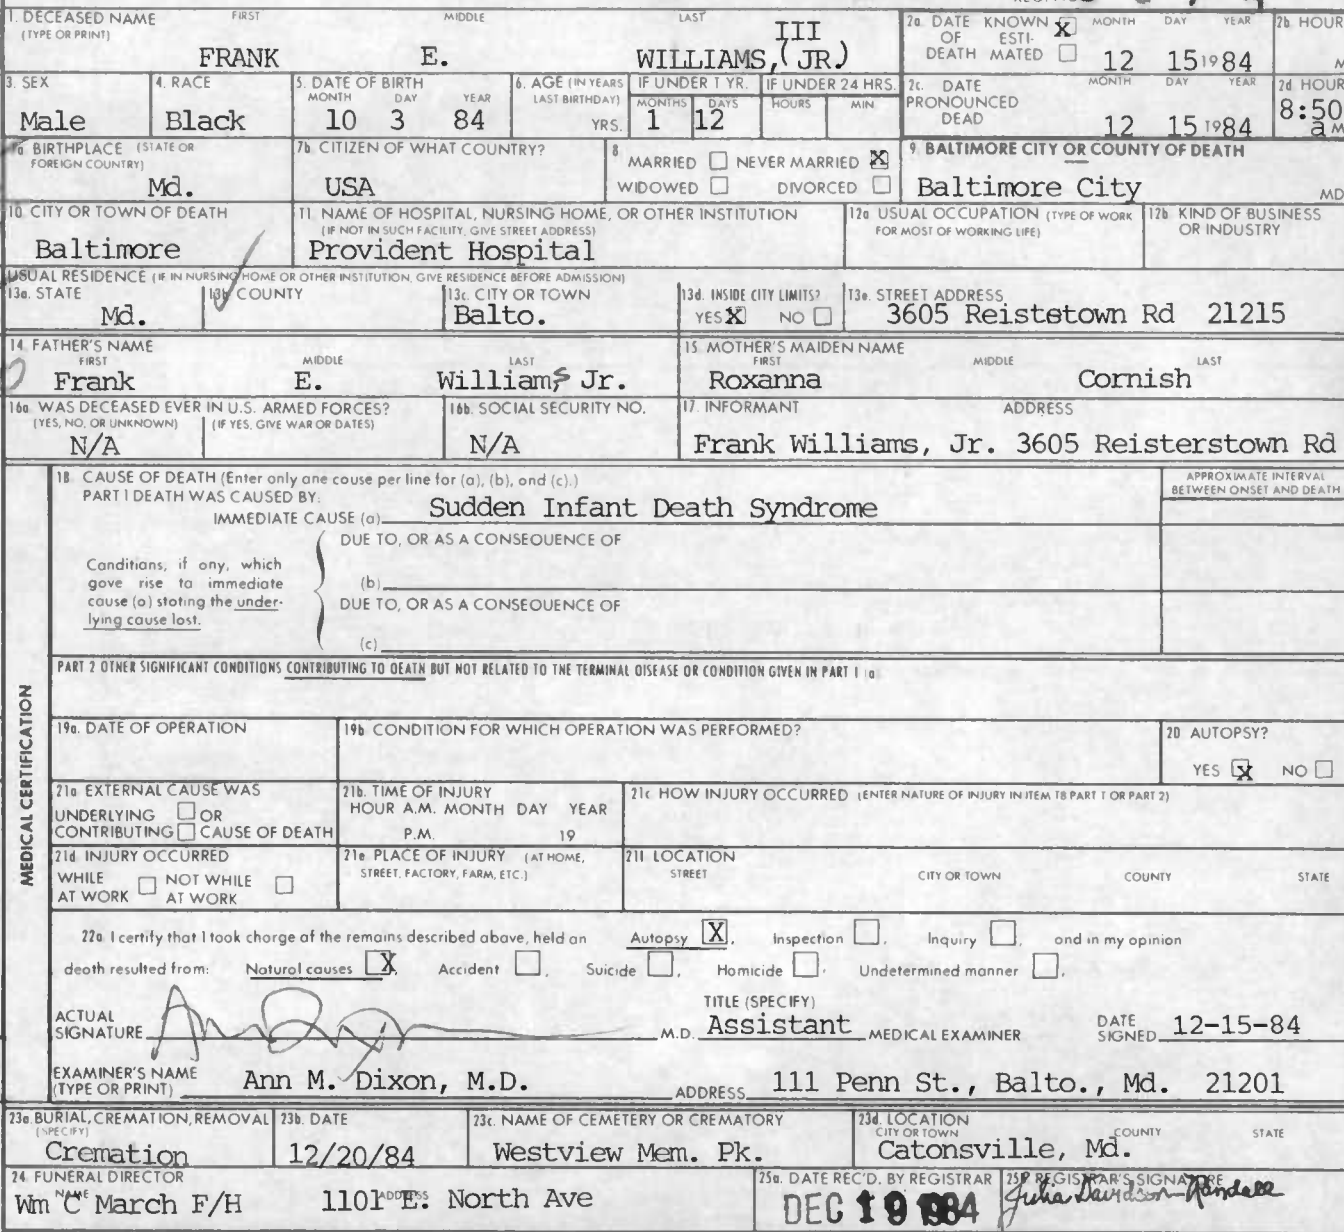 1. DECEASED NAME FIRST MIDDLE LAST
(TYPE OR PRINT)
III
FRANK E. WILLIAMS, (JR.)
2a. DATE OF DEATH KNOWN X ESTIMATED MONTH DAY YEAR
12 15 1984
2b. HOUR
M
3. SEX
Male
4. RACE
Black
5. DATE OF BIRTH
MONTH DAY YEAR
10 3 84
6. AGE (IN YEARS LAST BIRTHDAY)
YRS.
IF UNDER 1 YR.
MONTHS DAYS
1 12
IF UNDER 24 HRS.
HOURS MIN
2c. DATE PRONOUNCED DEAD MONTH DAY YEAR
12 15 1984
2d HOUR
8:50
a M
7a BIRTHPLACE (STATE OR FOREIGN COUNTRY)
Md.
7b. CITIZEN OF WHAT COUNTRY?
USA
8 MARRIED NEVER MARRIED X
WIDOWED DIVORCED
9. BALTIMORE CITY OR COUNTY OF DEATH
Baltimore City MD
10 CITY OR TOWN OF DEATH
Baltimore
11 NAME OF HOSPITAL, NURSING HOME, OR OTHER INSTITUTION
(IF NOT IN SUCH FACILITY, GIVE STREET ADDRESS)
Provident Hospital
12a USUAL OCCUPATION (TYPE OF WORK FOR MOST OF WORKING LIFE)
12b KIND OF BUSINESS OR INDUSTRY
USUAL RESIDENCE (IF IN NURSING HOME OR OTHER INSTITUTION, GIVE RESIDENCE BEFORE ADMISSION)
13a. STATE
Md.
13b COUNTY
13c. CITY OR TOWN
Balto.
13d. INSIDE CITY LIMITS?
YES X NO
13e. STREET ADDRESS
3605 Reistetown Rd 21215
14 FATHER'S NAME
FIRST MIDDLE LAST
Frank E. Williams Jr.
15 MOTHER'S MAIDEN NAME
FIRST MIDDLE LAST
Roxanna Cornish
16a WAS DECEASED EVER IN U.S. ARMED FORCES?
(YES, NO, OR UNKNOWN) (IF YES, GIVE WAR OR DATES)
N/A
16b. SOCIAL SECURITY NO.
N/A
17. INFORMANT ADDRESS
Frank Williams, Jr. 3605 Reisterstown Rd
MEDICAL CERTIFICATION
18 CAUSE OF DEATH (Enter only one cause per line for (a), (b), and (c).)
PART I DEATH WAS CAUSED BY:
IMMEDIATE CAUSE (a) Sudden Infant Death Syndrome
APPROXIMATE INTERVAL
BETWEEN ONSET AND DEATH
DUE TO, OR AS A CONSEQUENCE OF
Conditions, if any, which
gave rise to immediate
cause (a) stating the under-
lying cause last.
(b)
DUE TO, OR AS A CONSEQUENCE OF
(c)
PART 2 OTHER SIGNIFICANT CONDITIONS CONTRIBUTING TO DEATH BUT NOT RELATED TO THE TERMINAL DISEASE OR CONDITION GIVEN IN PART 1 (a)
19a. DATE OF OPERATION
19b CONDITION FOR WHICH OPERATION WAS PERFORMED?
20 AUTOPSY?
YES X NO
21a EXTERNAL CAUSE WAS
UNDERLYING OR
CONTRIBUTING CAUSE OF DEATH
21b. TIME OF INJURY
HOUR A.M. MONTH DAY YEAR
P.M. 19
21c HOW INJURY OCCURRED (ENTER NATURE OF INJURY IN ITEM 18 PART 1 OR PART 2)
21d INJURY OCCURRED
WHILE AT WORK NOT WHILE AT WORK
21e PLACE OF INJURY (AT HOME,
STREET, FACTORY, FARM, ETC.)
21f LOCATION
STREET CITY OR TOWN COUNTY STATE
22a I certify that I took charge of the remains described above, held an Autopsy X, Inspection, Inquiry, and in my opinion
death resulted from: Natural causes X, Accident, Suicide, Homicide, Undetermined manner.
ACTUAL
SIGNATURE M.D.
TITLE (SPECIFY)
Assistant MEDICAL EXAMINER
DATE
SIGNED 12-15-84
EXAMINER'S NAME
(TYPE OR PRINT) Ann M. Dixon, M.D.
ADDRESS 111 Penn St., Balto., Md. 21201
23a. BURIAL, CREMATION, REMOVAL
(SPECIFY)
Cremation
23b. DATE
12/20/84
23c. NAME OF CEMETERY OR CREMATORY
Westview Mem. Pk.
23d. LOCATION
CITY OR TOWN COUNTY STATE
Catonsville, Md.
24 FUNERAL DIRECTOR
NAME ADDRESS
Wm C March F/H 1101 E. North Ave
25a. DATE REC'D. BY REGISTRAR
DEC 19 1984
25b REGISTRAR'S SIGNATURE
Julia Davidson-Randall